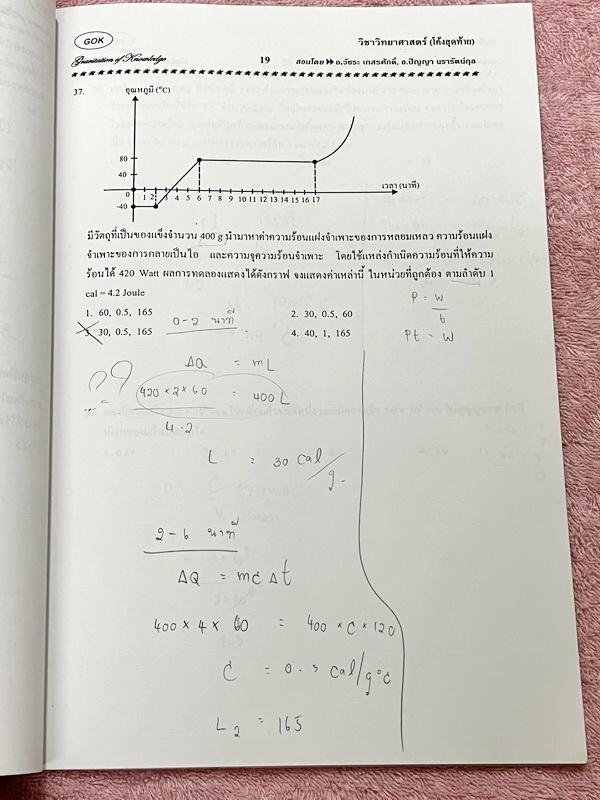 GOK
วิชาวิทยาศาสตร์ (โค้งสุดท้าย)
Gravitation of Knowledge 19 สอนโดย อ.วัธระ เกสรศักดิ์, อ.ปัญญา นรารัตน์กุล
37. อุณหภูมิ (°C)
80
40
0
-40
1 2 3 4 5 6 7 8 9 10 11 12 13 14 15 16 17
เวลา (นาที)
มีวัตถุที่เป็นของแข็งจำนวน 400 g นำมาหาค่าความร้อนแฝงจำเพาะของการหลอมเหลว ความร้อนแฝง
จำเพาะของการกลายเป็นไอ และความจุความร้อนจำเพาะ โดยใช้แหล่งกำเนิดความร้อนที่ให้ความ
ร้อนได้ 420 Watt ผลการทดลองแสดงได้ดังกราฟ จงแสดงค่าเหล่านี้ ในหน่วยที่ถูกต้อง ตามลำดับ 1
cal = 4.2 Joule
1. 60, 0.5, 165
2. 30, 0.5, 60
3. 30, 0.5, 165
4. 40, 1, 165
P = W
t
Pt = W
0-2 นาที
ΔQ = mL
??
420 × 2 × 60 = 400 L
4.2
L = 30 cal/g.
2-6 นาที
ΔQ = mcΔt
400 × 4 × 60 = 400 × C × 120
C = 0.5 cal/g°C
L2 = 165